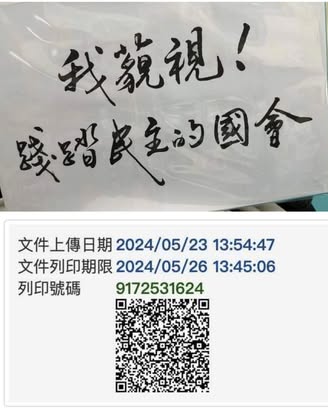 我藐視!
踐踏民主的國會
文件上傳日期 2024/05/23 13:54:47
文件列印期限 2024/05/26 13:45:06
列印號碼 9172531624